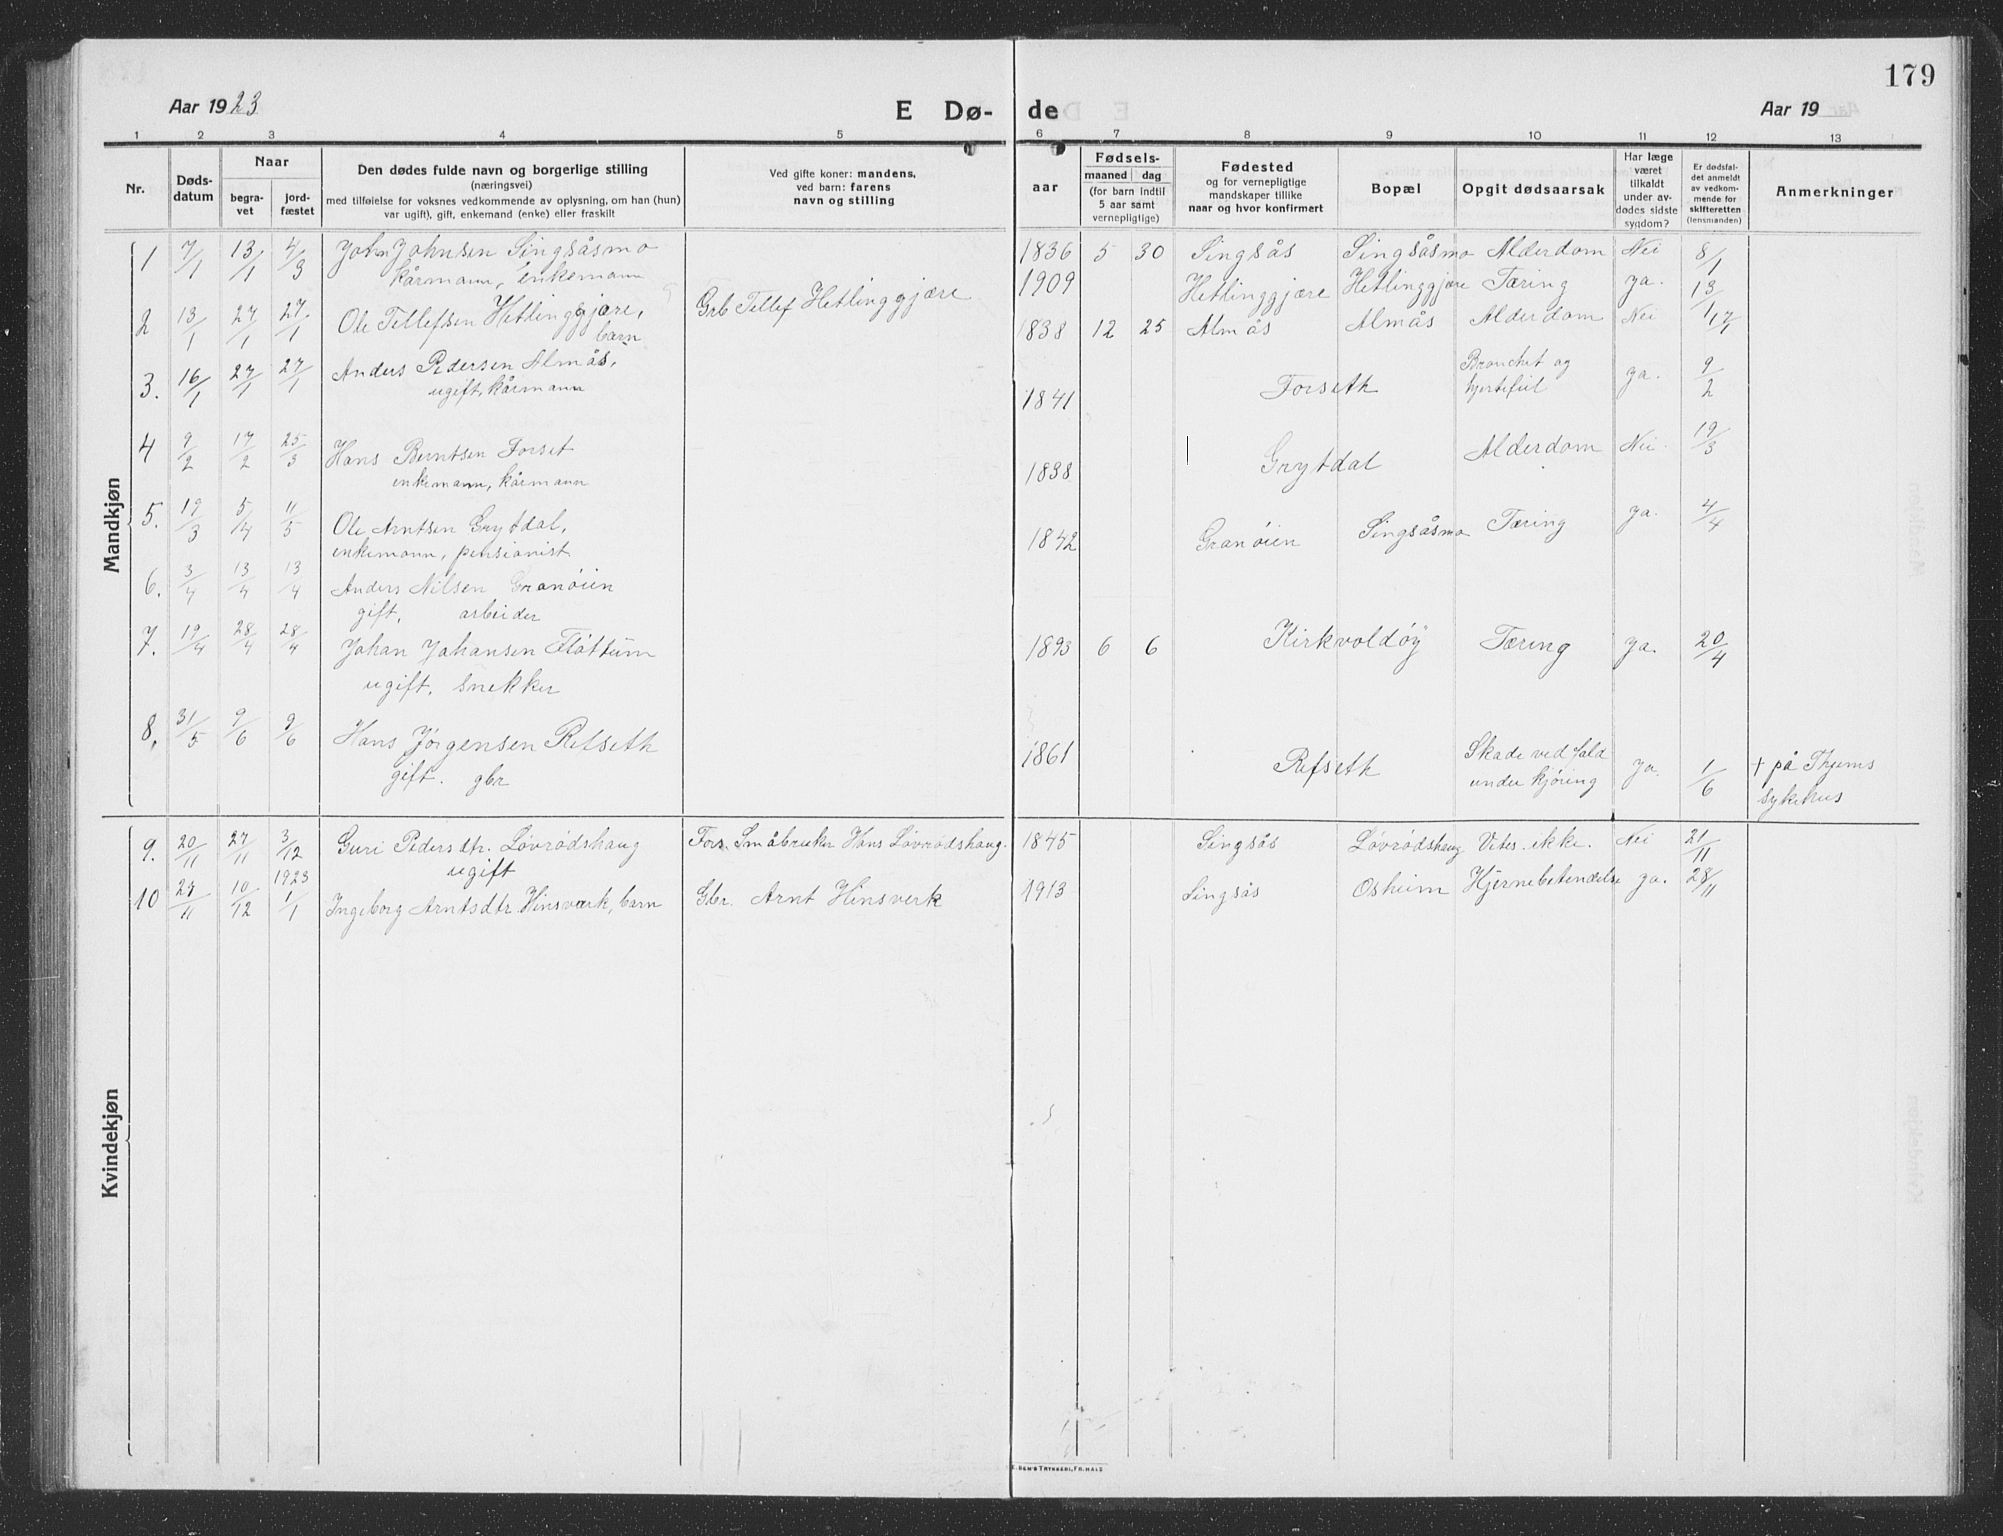 179
Aar 1923
E Dø-
de
Aar 19
1 2 3 4 5 6 7 8 9 10 11 12 13
Nr.
Døds-
datum
Naar
begra-
vet
jord-
fæstet
Den dødes fulde navn og borgerlige stilling
(næringsvei)
med tilføielse for voksnes vedkommende av oplysning, om han (hun)
var ugift), gift, enkemand (enke) eller fraskilt
Ved gifte koner: mandens,
ved barn: farens
navn og stilling
aar
Fødsels-
maaned dag
(for barn indtil
5 aar samt
vernepligtige)
Fødested
og for vernepligtige
mandskaper tillike
naar og hvor konfirmert
Bopæl
Opgit dødsaarsak
Har læge
været
tilkaldt
under av-
dødes sidste
sygdom?
Er dødsfal-
det anmeldt
av vedkom-
mende for
skifteretten
(lensmanden)
Anmerkninger
Mandkjøn
1 7/1 13/1 4/3 John Johnsen Singsåsmo 1836 5 30 Singsås Singsåsmo Alderdom Nei 8/1
kårmann, enkemann
2 13/1 27/1 27/1 Ole Tellefsen Hetlinggjære, Grb Tellef Hetlinggjære 1909 Hetlinggjære Hetlinggjære Tæring ja. 13/1
barn
3. 16/1 27/1 27/1 Anders Pedersen Almås, 1838 12 25 Almås Almås Alderdom Nei 17/1
ugift, kårmann
4 9/2 17/2 25/3 Hans Berntsen Forset 1841 Forseth Bronchet og ja. 9/2
enkemann, kårmann hjertefeil
5. 19/3 5/4 11/5 Ole Arntsen Grytdal, 1838 Grytdal Alderdom Nei. 19/3
enkemann, pensionist
6. 3/4 13/4 13/4 Anders Nilsen Granöien 1842 Granöien Singsåsmo Tæring ja. 4/4
gift, arbeider
7. 19/4 28/4 28/4 Johan Johansen Fløttum 1893 6 6 Kirkvoldöy Tæring ja. 20/4
ugift, snekker
8. 31/5 9/6 9/6 Hans Jørgensen Refseth 1861 Refseth Skade ved fald ja. 1/6 + på Thjems
gift. gbr under kjøring sykehus
Kvindekjøn
9. 20/11 27/11 3/12 Guri Pedersdtr. Løvrødshaug Fors. Småbruker Hans Løvrødshaug. 1845 Singsås Løvrødshaug Vites ikke. Nei 21/11
ugift
1923
10 27/11 10/12 1/1 Ingeborg Arntsdtr. Hinsværk, barn Gbr. Arnt Hinsverk 1913 Singsås Osheim Hjernebetendelse ja. 28/11